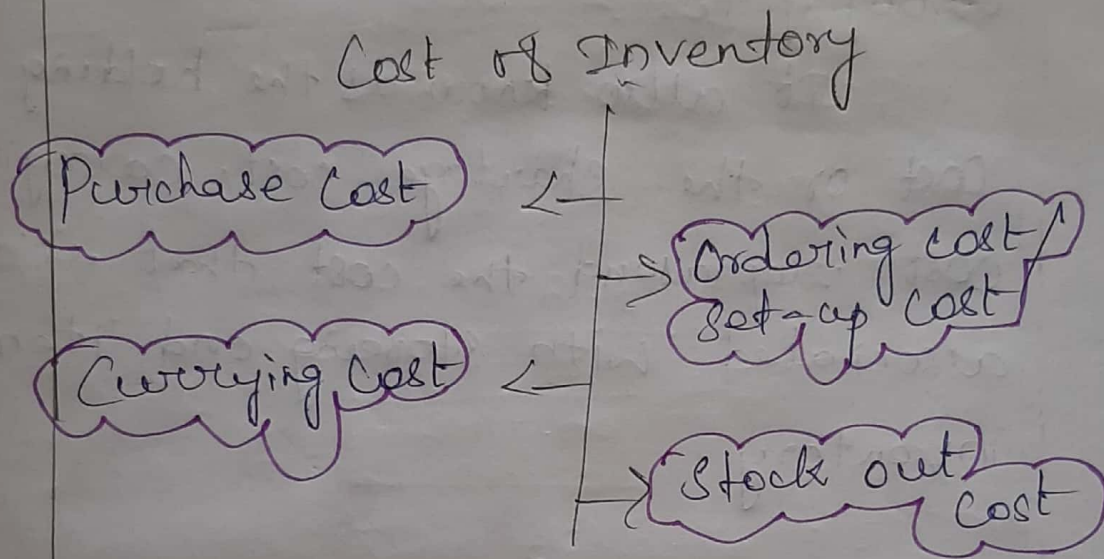 Cost of Inventory
Purchase Cost
Ordering cost/
set-up cost
Currying Cost
Stock out
cost